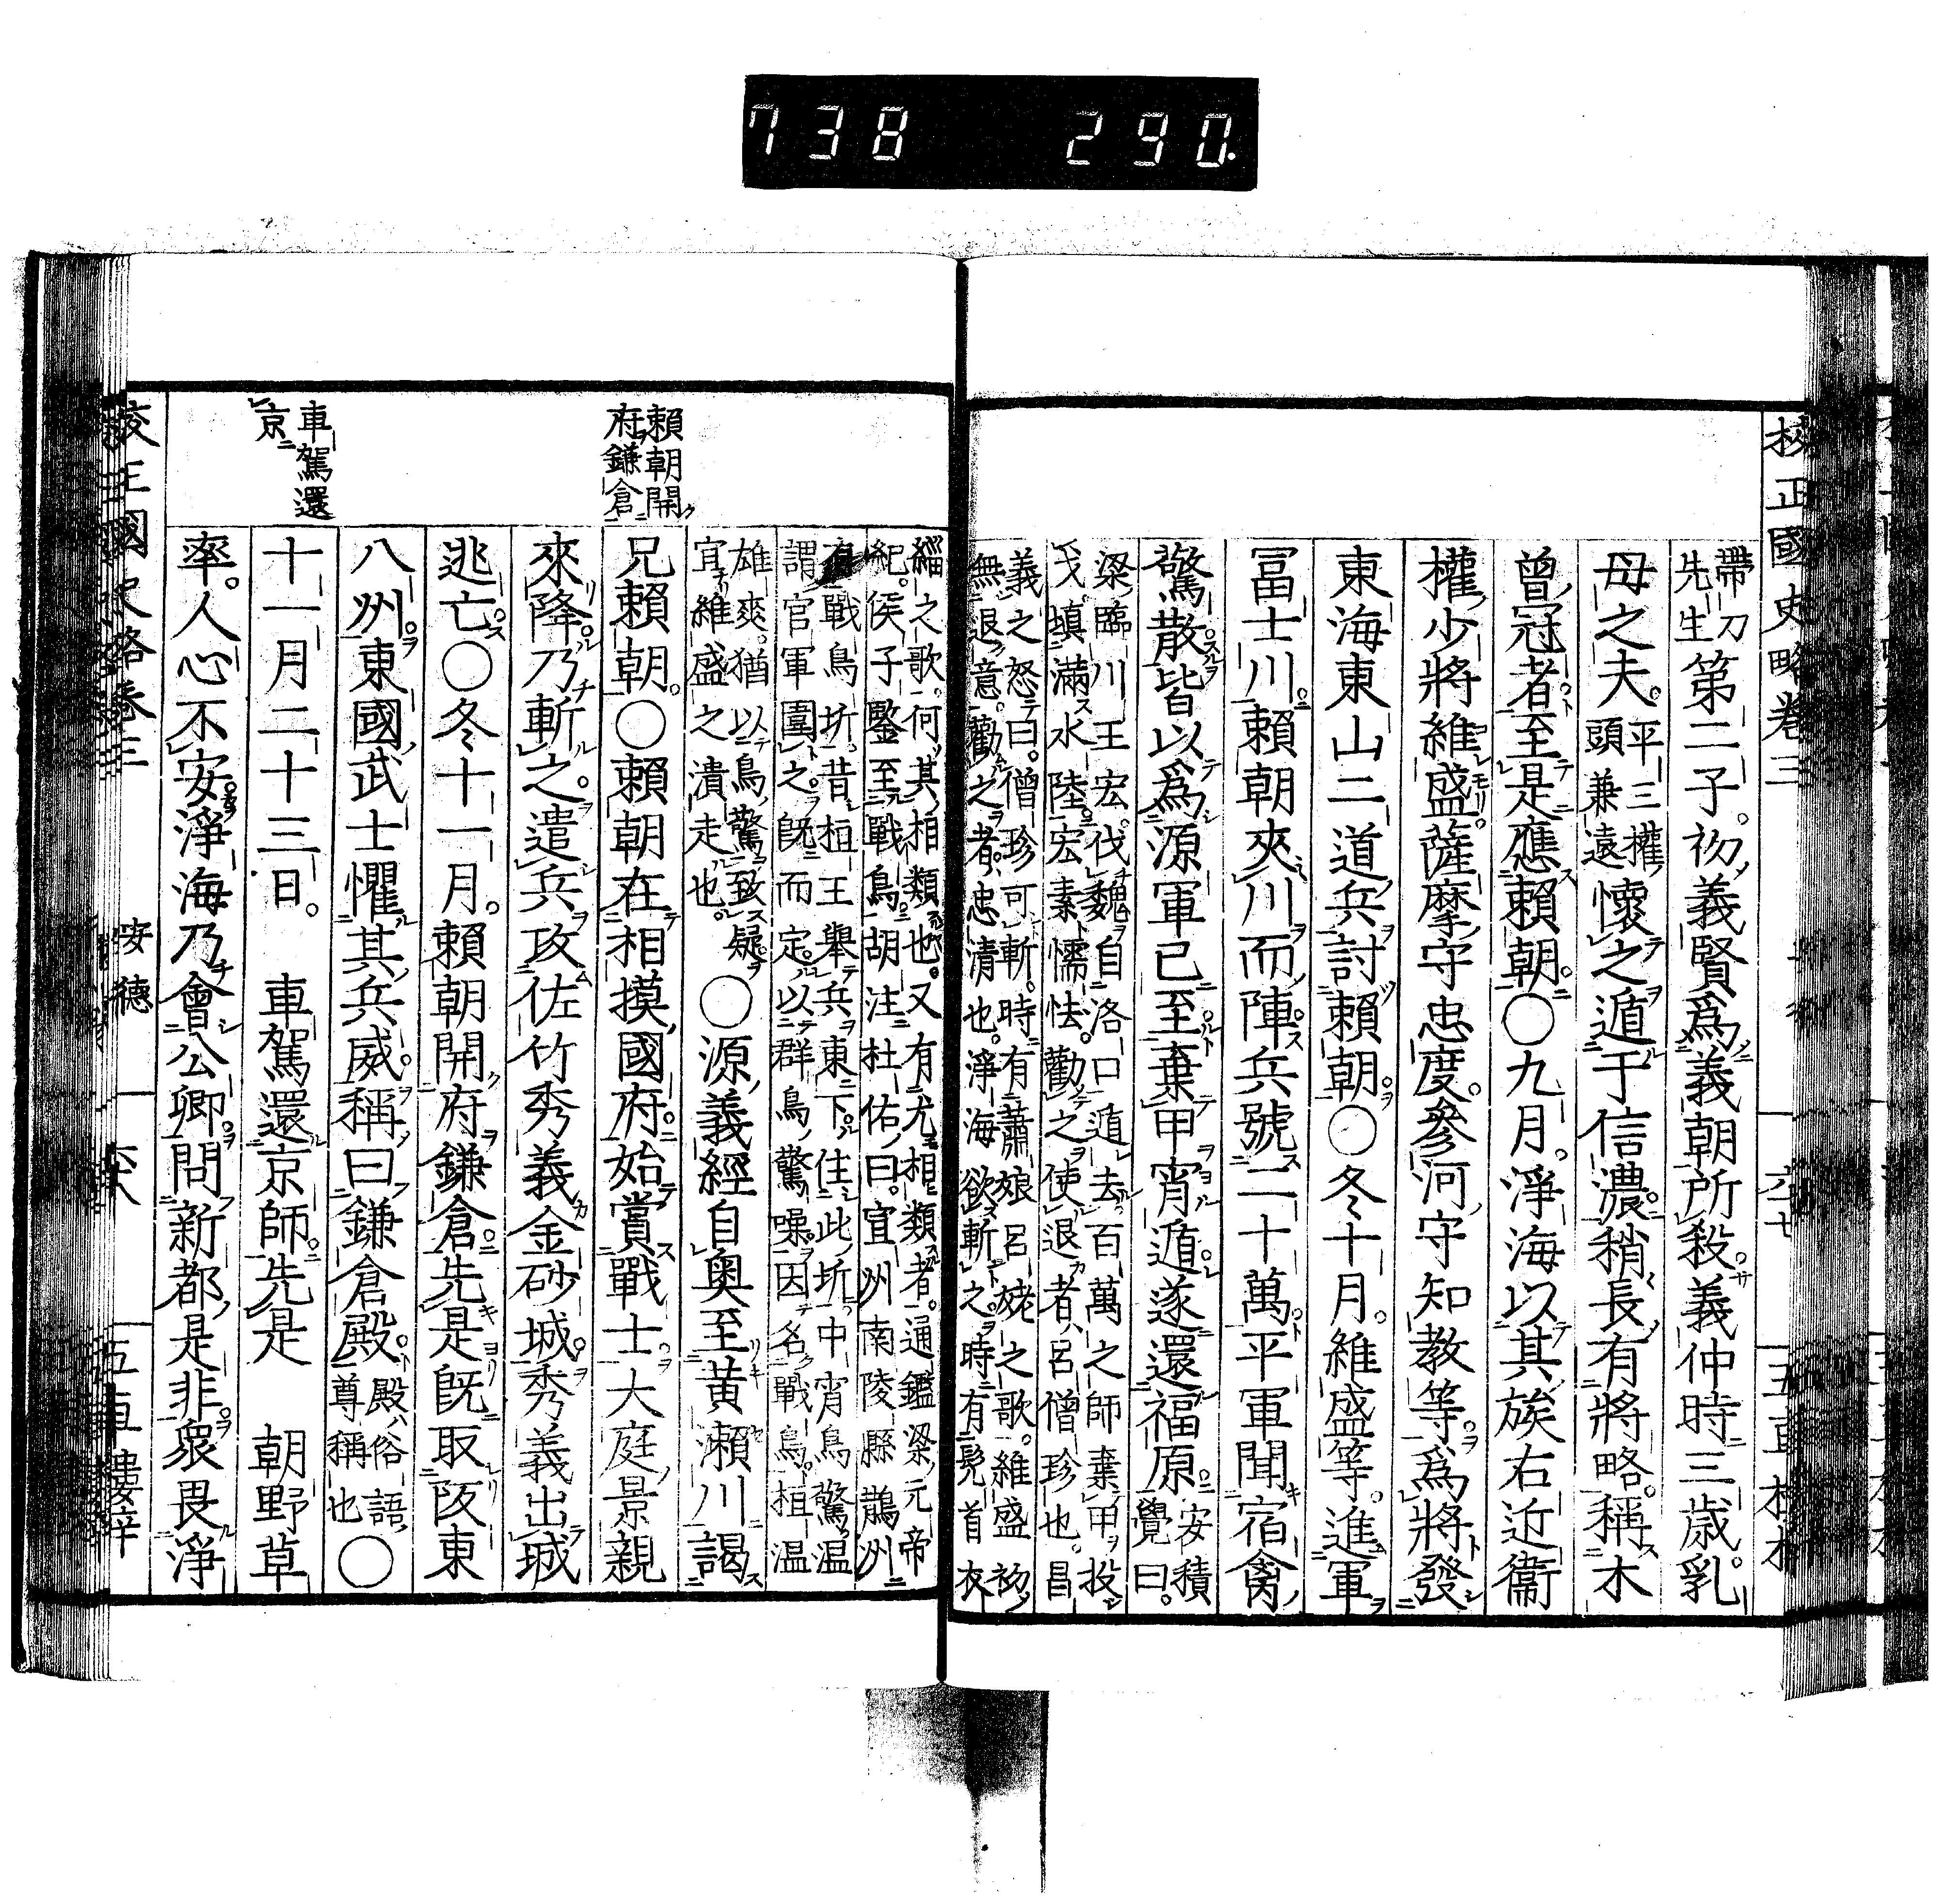 738 290.
校正國史略卷三
帶刀
先生第二子。初義賢爲義朝所殺。義仲時三歲。乳
母之夫。平三權
頭兼遠懷之遁于信濃。稍長有將略。稱木
曾冠者。至是應賴朝。○九月。淨海以其族右近衞
權少將維盛。薩摩守忠度。參河守知敎等。爲將發
東海東山二道兵討賴朝。○冬十月。維盛等。進軍
冨士川。賴朝夾川而陣。兵號二十萬。平軍聞宿禽
驚散。皆以爲源軍已至。棄甲宵遁。遂還福原。安積
覺曰。
梁臨川王宏。伐魏。自洛口遁去。百萬之師棄甲投
戈。塡滿水陸。宏素懦怯。勸之使退者。呂僧珍也。昌
義之怒曰。僧珍可斬。時有蕭娘呂姥之歌。維盛初
無退意。勸之者。忠淸也。淨海欲斬之。時有髡首衣
緇之歌。何其相類也。又有尤相類者。通鑑梁元帝
紀。侯子鑒至戰鳥。胡注杜佑曰。宜州南陵縣鵲洲
有戰鳥圻。昔桓王擧兵東下。住此圻。中宵鳥驚。溫
謂官軍圍之。旣而定。以群鳥驚噪。因名戰鳥。桓溫
雄爽。猶以鳥驚致疑。
宜維盛之潰走也。○源義經自奧至黃瀨川謁
兄賴朝。○賴朝在相摸國府。始賞戰士。大庭景親
來降。乃斬之。遣兵攻佐竹秀義金砂城。秀義出城
逃亡。○冬十一月。賴朝開府鎌倉。先是旣取阪東
八州。東國武士懼其兵威。稱曰鎌倉殿。殿俗語
尊稱也○
十一月二十三日。車駕還京師。先是朝野草
率。人心不安。淨海乃會公卿。問新都是非。衆畏淨
賴朝開
府鎌倉
車駕還
京
安德